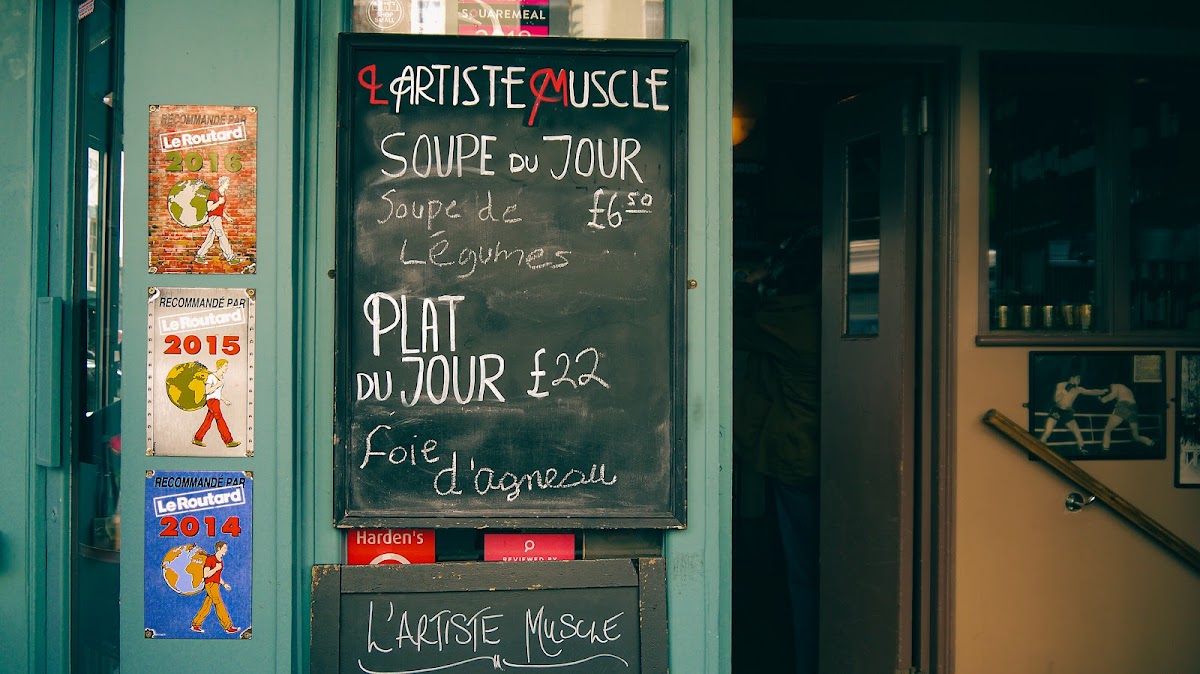 SQUAREMEAL
L'ARTISTE MUSCLE
SOUPE DU JOUR
Soupe de £6 50
Légumes
PLAT
DU JOUR £22
Foie
d'agneau
RECOMMANDÉ PAR
Le Routard
2016
RECOMMANDÉ PAR
Le Routard
2015
RECOMMANDÉ PAR
Le Routard
2014
Harden's
REVIEWED BY
L'ARTISTE MUSCLE